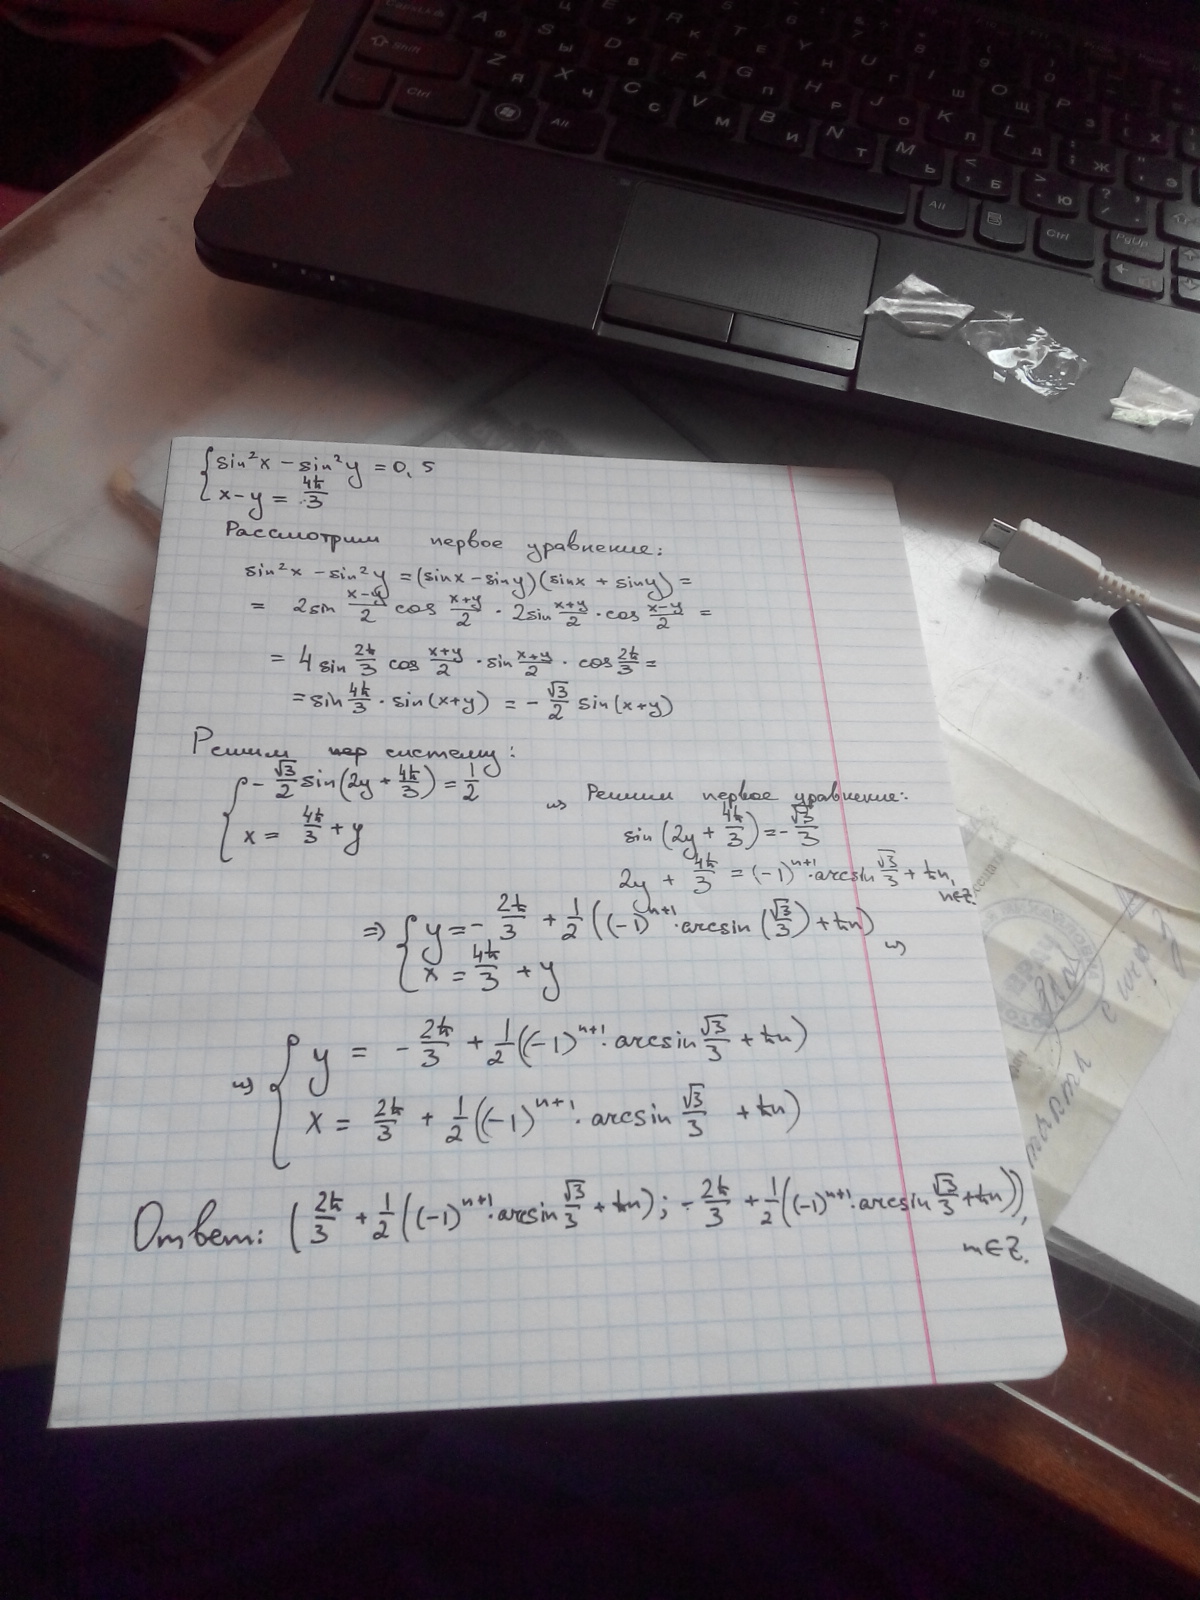 CapsLock A Ф S Ы D В F А G П H Р J О K Л L Д Ж Э
Shift Z Я X Ч C С V М B И N Т M Ь < , Б > . Ю ? /
Ctrl Alt Alt Ctrl PgUp
{ sin²x − sin²y = 0,5
x − y = 4π/3
Рассмотрим первое уравнение:
sin²x − sin²y = (sinx − siny)(sinx + siny) =
= 2sin (x−y)/2 cos (x+y)/2 · 2sin (x+y)/2 · cos (x−y)/2 =
= 4 sin 2π/3 cos (x+y)/2 · sin (x+y)/2 · cos 2π/3 =
= sin 4π/3 · sin(x+y) = − √3/2 sin(x+y)
Решим систему:
{ − √3/2 sin(2y + 4π/3) = 1/2
x = 4π/3 + y
⇒ Решим первое уравнение:
sin(2y + 4π/3) = − √3/3
2y + 4π/3 = (−1)ⁿ⁺¹ · arcsin √3/3 + πn,
n∈Z.
⇒ { y = − 2π/3 + 1/2 ((−1)ⁿ⁺¹ · arcsin (√3/3) + πn) ⇒
x = 4π/3 + y
⇒ { y = − 2π/3 + 1/2 ((−1)ⁿ⁺¹ · arcsin √3/3 + πn)
x = 2π/3 + 1/2 ((−1)ⁿ⁺¹ · arcsin √3/3 + πn)
Ответ: (2π/3 + 1/2 ((−1)ⁿ⁺¹ · arcsin √3/3 + πn); − 2π/3 + 1/2 ((−1)ⁿ⁺¹ · arcsin √3/3 + πn)),
n∈Z.